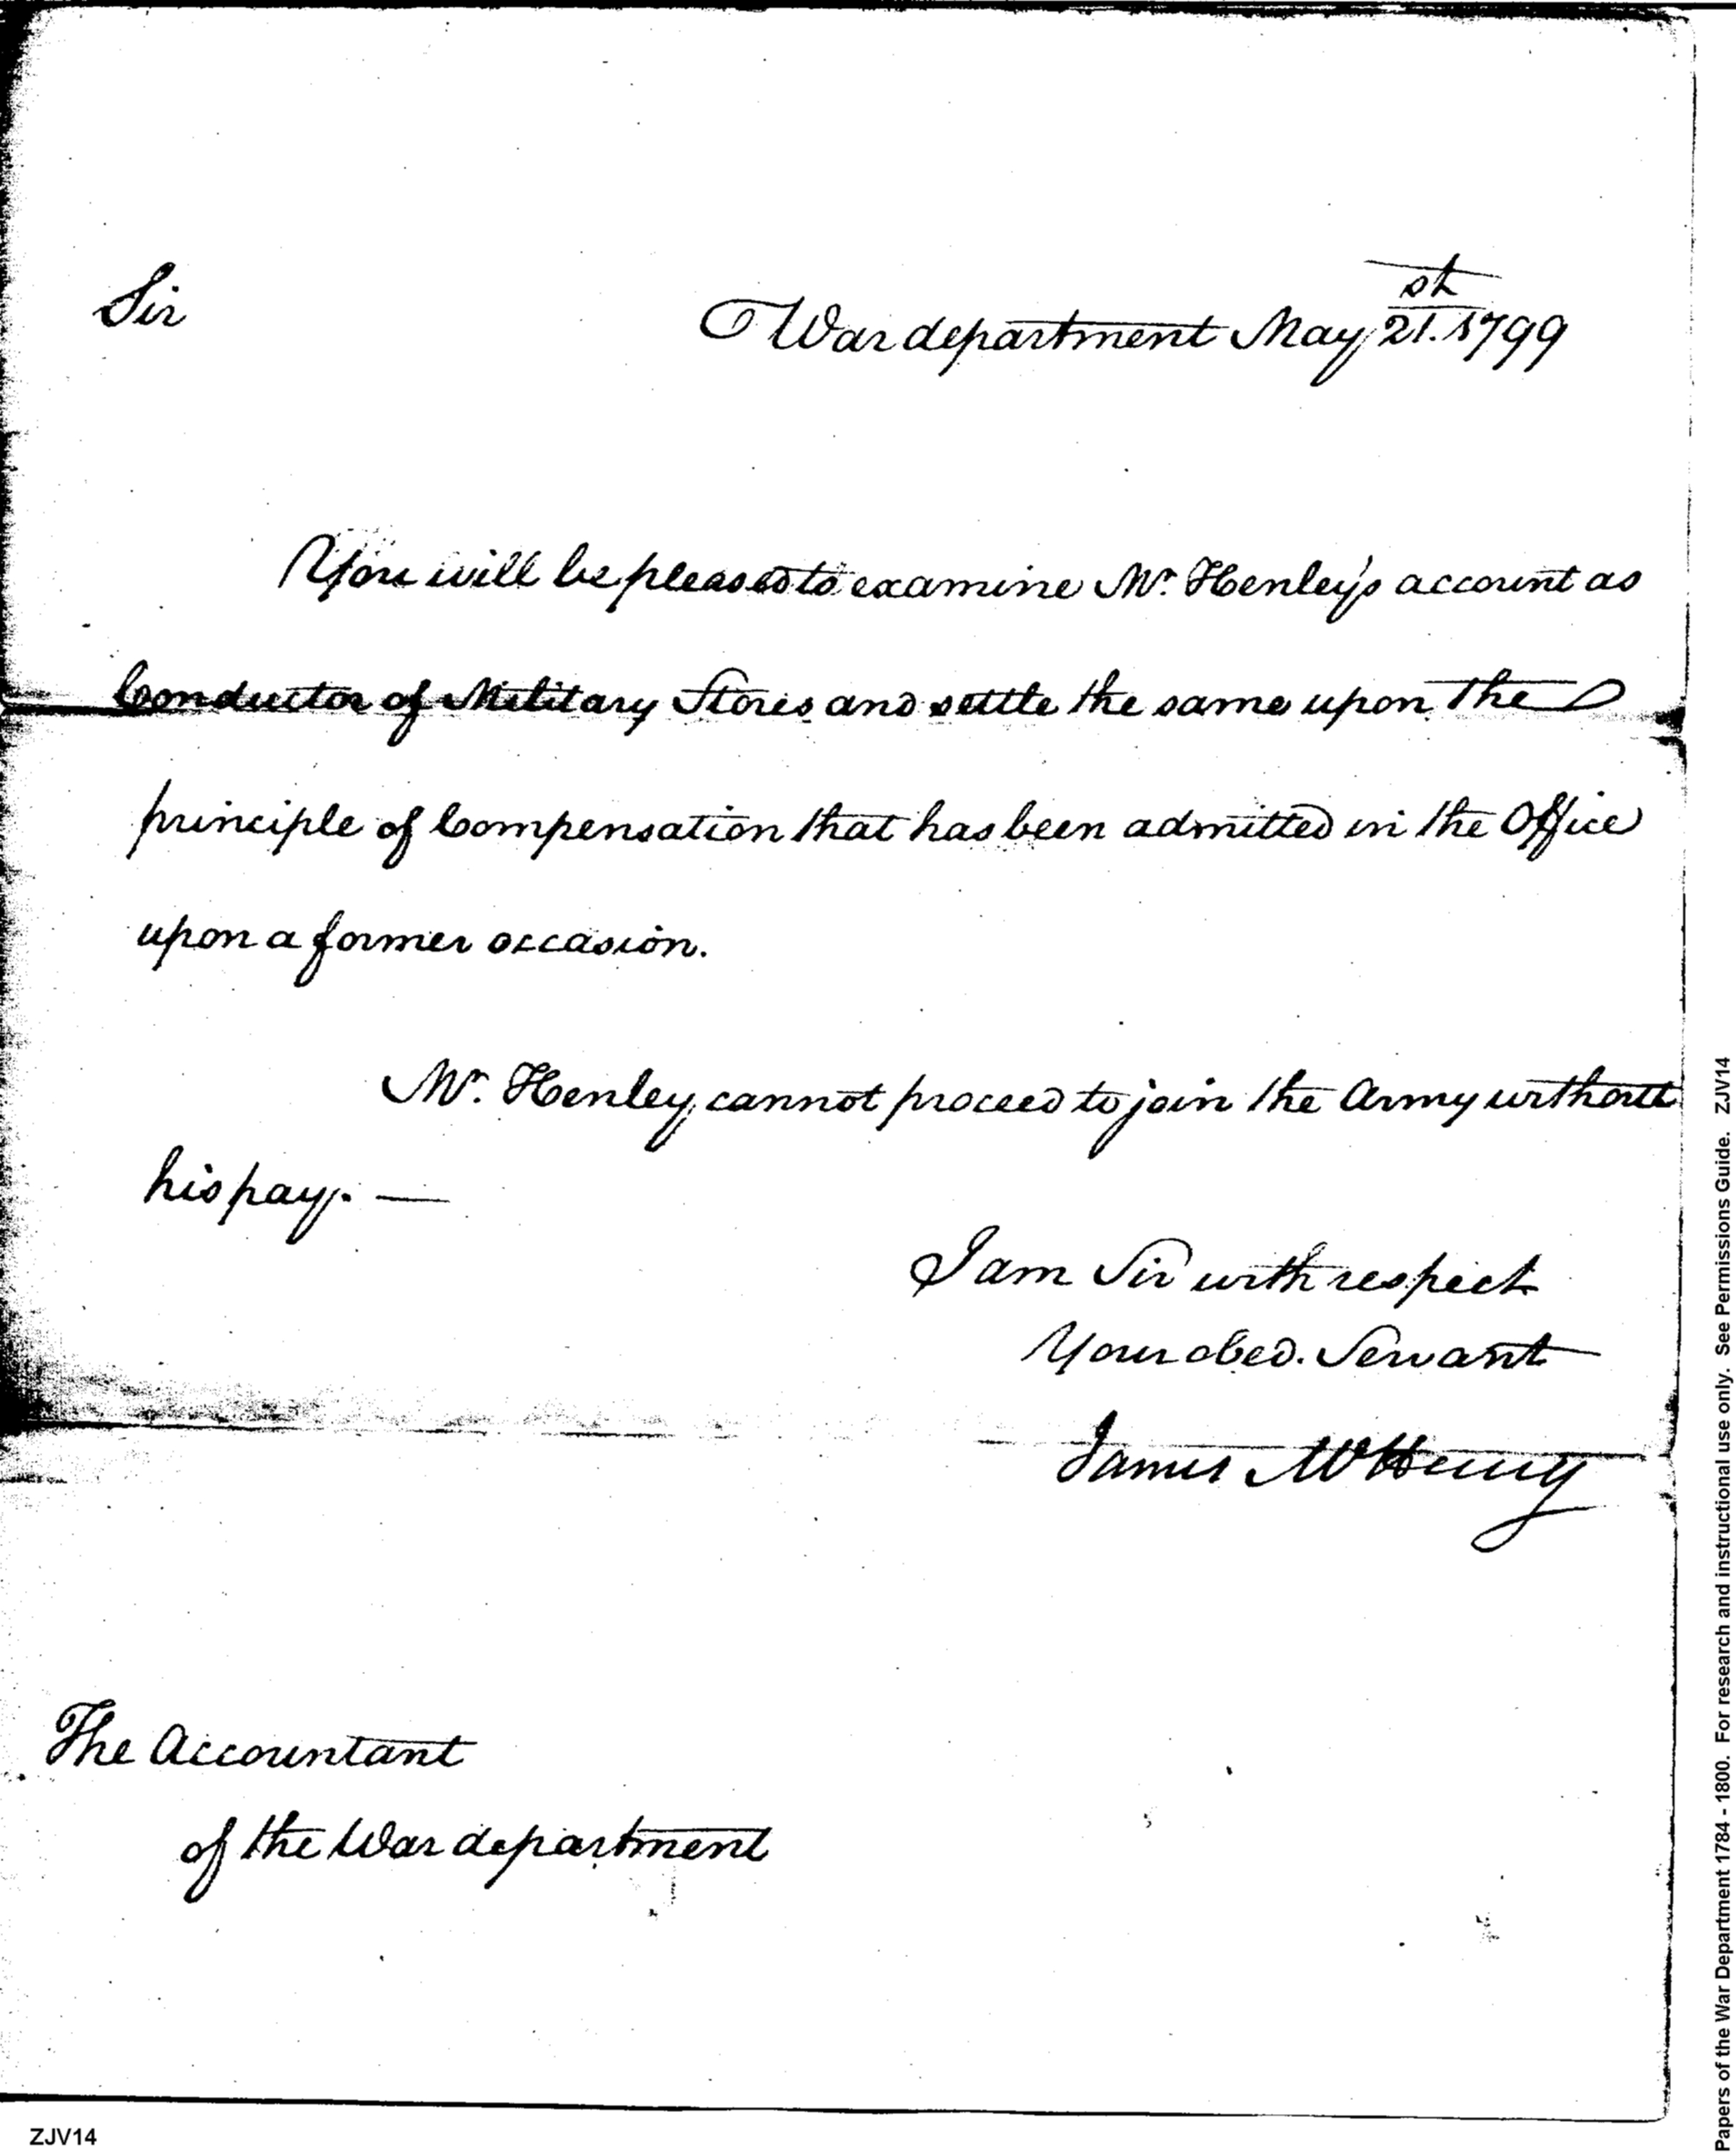 Sir
War department May 21.st 1799
You will be pleased to examine Mr. Henley's account as
Conductor of Military Stores and settle the same upon the
principle of Compensation that has been admitted in the Office
upon a former occasion.
Mr. Henley, cannot proceed to join the Army without
his pay. —
I am Sir with respect
Your obed. Servant
James McHenry
The Accountant
of the War department
ZJV14
Papers of the War Department 1784 - 1800. For research and instructional use only. See Permissions Guide. ZJV14